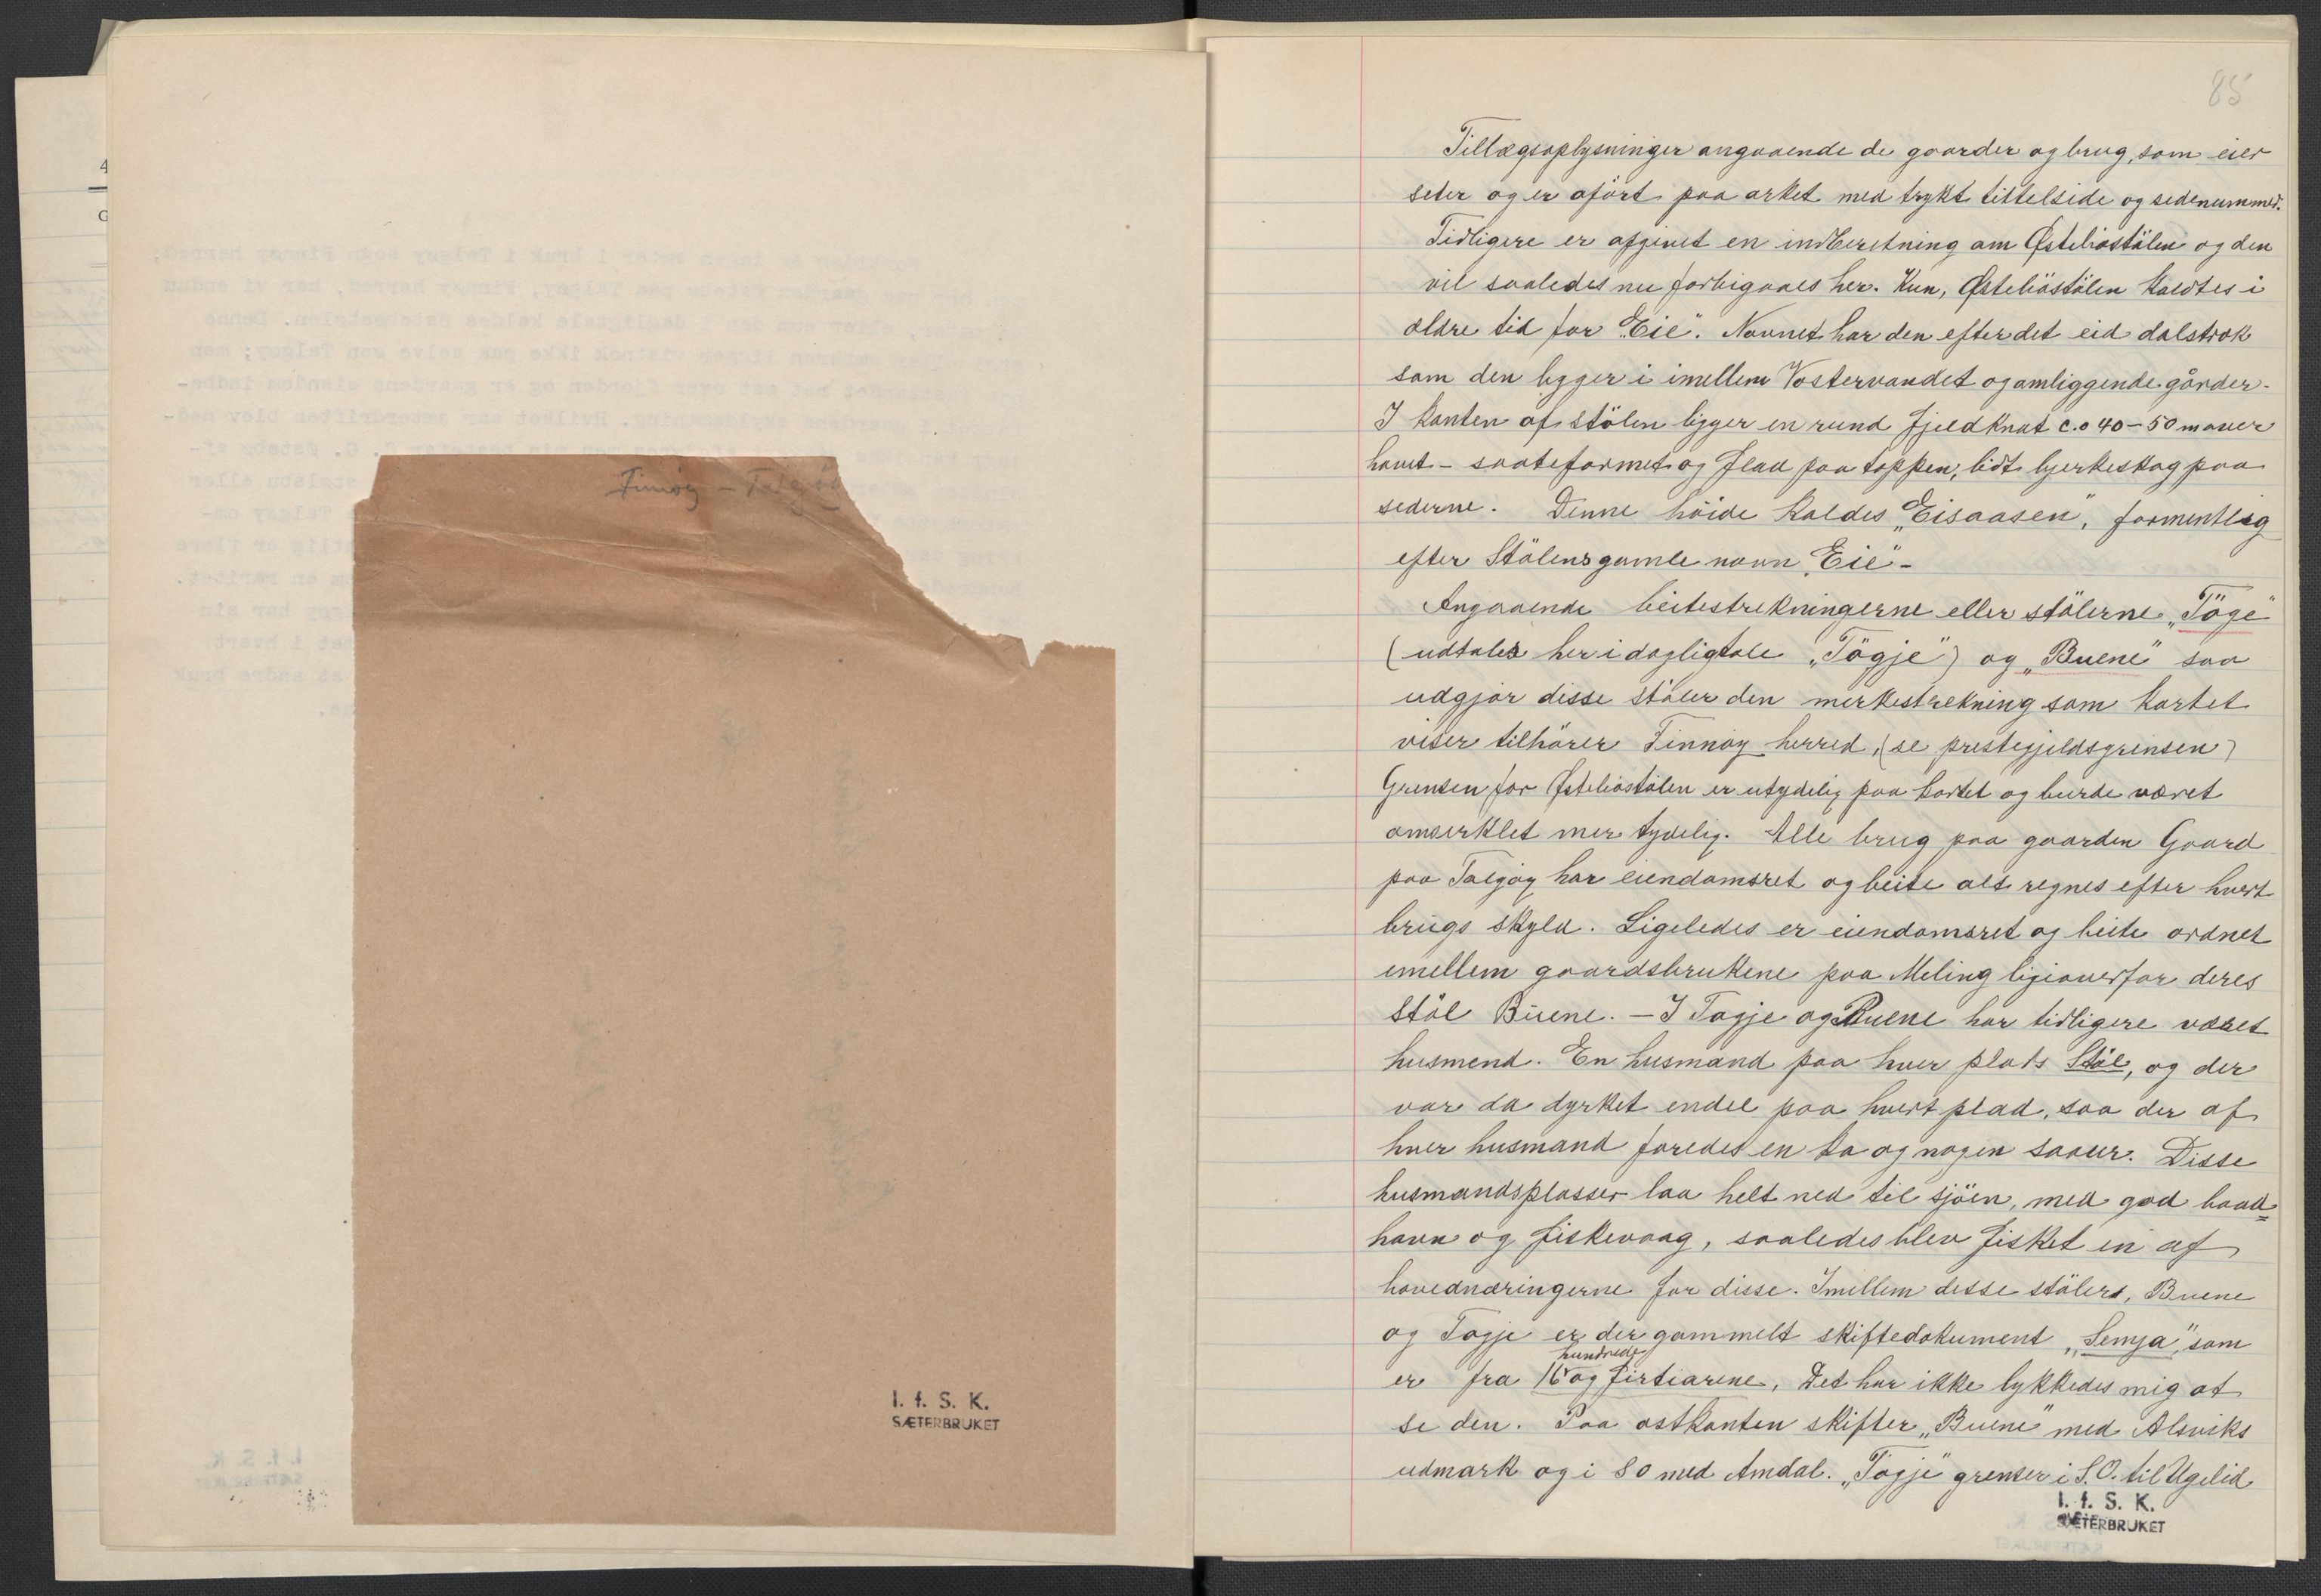 Finnøy - Talgöy
I. f. S. K.
SÆTERBRUKET
85
Tillægsoplysninger angaaende de gaarder og brug, som eier
seter og er oført paa arket med trykt tittelside og sedenummer.
Tidligere er afgivet en indberetning om Østeböstölen og den
vil saaledes nu forbigaaes her. Kun, Østeböstölen kaldtes i
ældre tid for "Eie". Navnet har den efter det eid dalstrøk
som den ligger i imellem Vostervandet og omliggende gårder.
I kanten af stölen ligger en rund fjeldknat c.a 40-50 m over
havet - saateformet og flad paa toppen, lidt bjerkeskog paa
sederne. Denne höide kaldes "Eisaasen", formentlig
efter Stölens gamle navn "Eie"-
Angaaende beitestrekningerne eller stölerne "Töge"
(udtales her i dagligtale "Tögje") og "Buene" saa
udgjør disse støler den merkestrekning som kartet
viser tilhörer Finnöy herred, (se prestegjeldsgrensen)
Grensen for Østeböstölen er utydelig paa kartet og burde været
omserklet mer tydelig. Alle brug paa gaarden Gaard
paa Talgöy har eiendomsret og beite alt regnes efter hvert
brugs skyld. Ligeledes er eiendomsret og beite ordnet
emellem gaardsbrukene paa Meling ligeoverfor deres
Stöl Buene. - I Tøgje og Buene har tidligere været
husmend. En husmand paa hver plats Stöl, og der
var da dyrket endel paa hvert plad, saa der af
hver husmand foredes en ko og nogen saauer. Disse
husmandsplasser laa helt ned til sjöen, med god baad=
havn og fiskevaag, saaledes blev fisket en af
hovednæringerne for disse. Imellem desse stölers, Buene
og Tøgje er der gammelt skiftedokument "Semja," som
er fra 16 hundrede og firtiarene, Det har ikke lykkedes mig at
se den. Paa ostkanten skifter "Buene" med Alsviks
udmark og i S O med Amdal. "Tøgje" grenser i S.O. til Ugelid
I. f. S. K.
SÆTERBRUKET